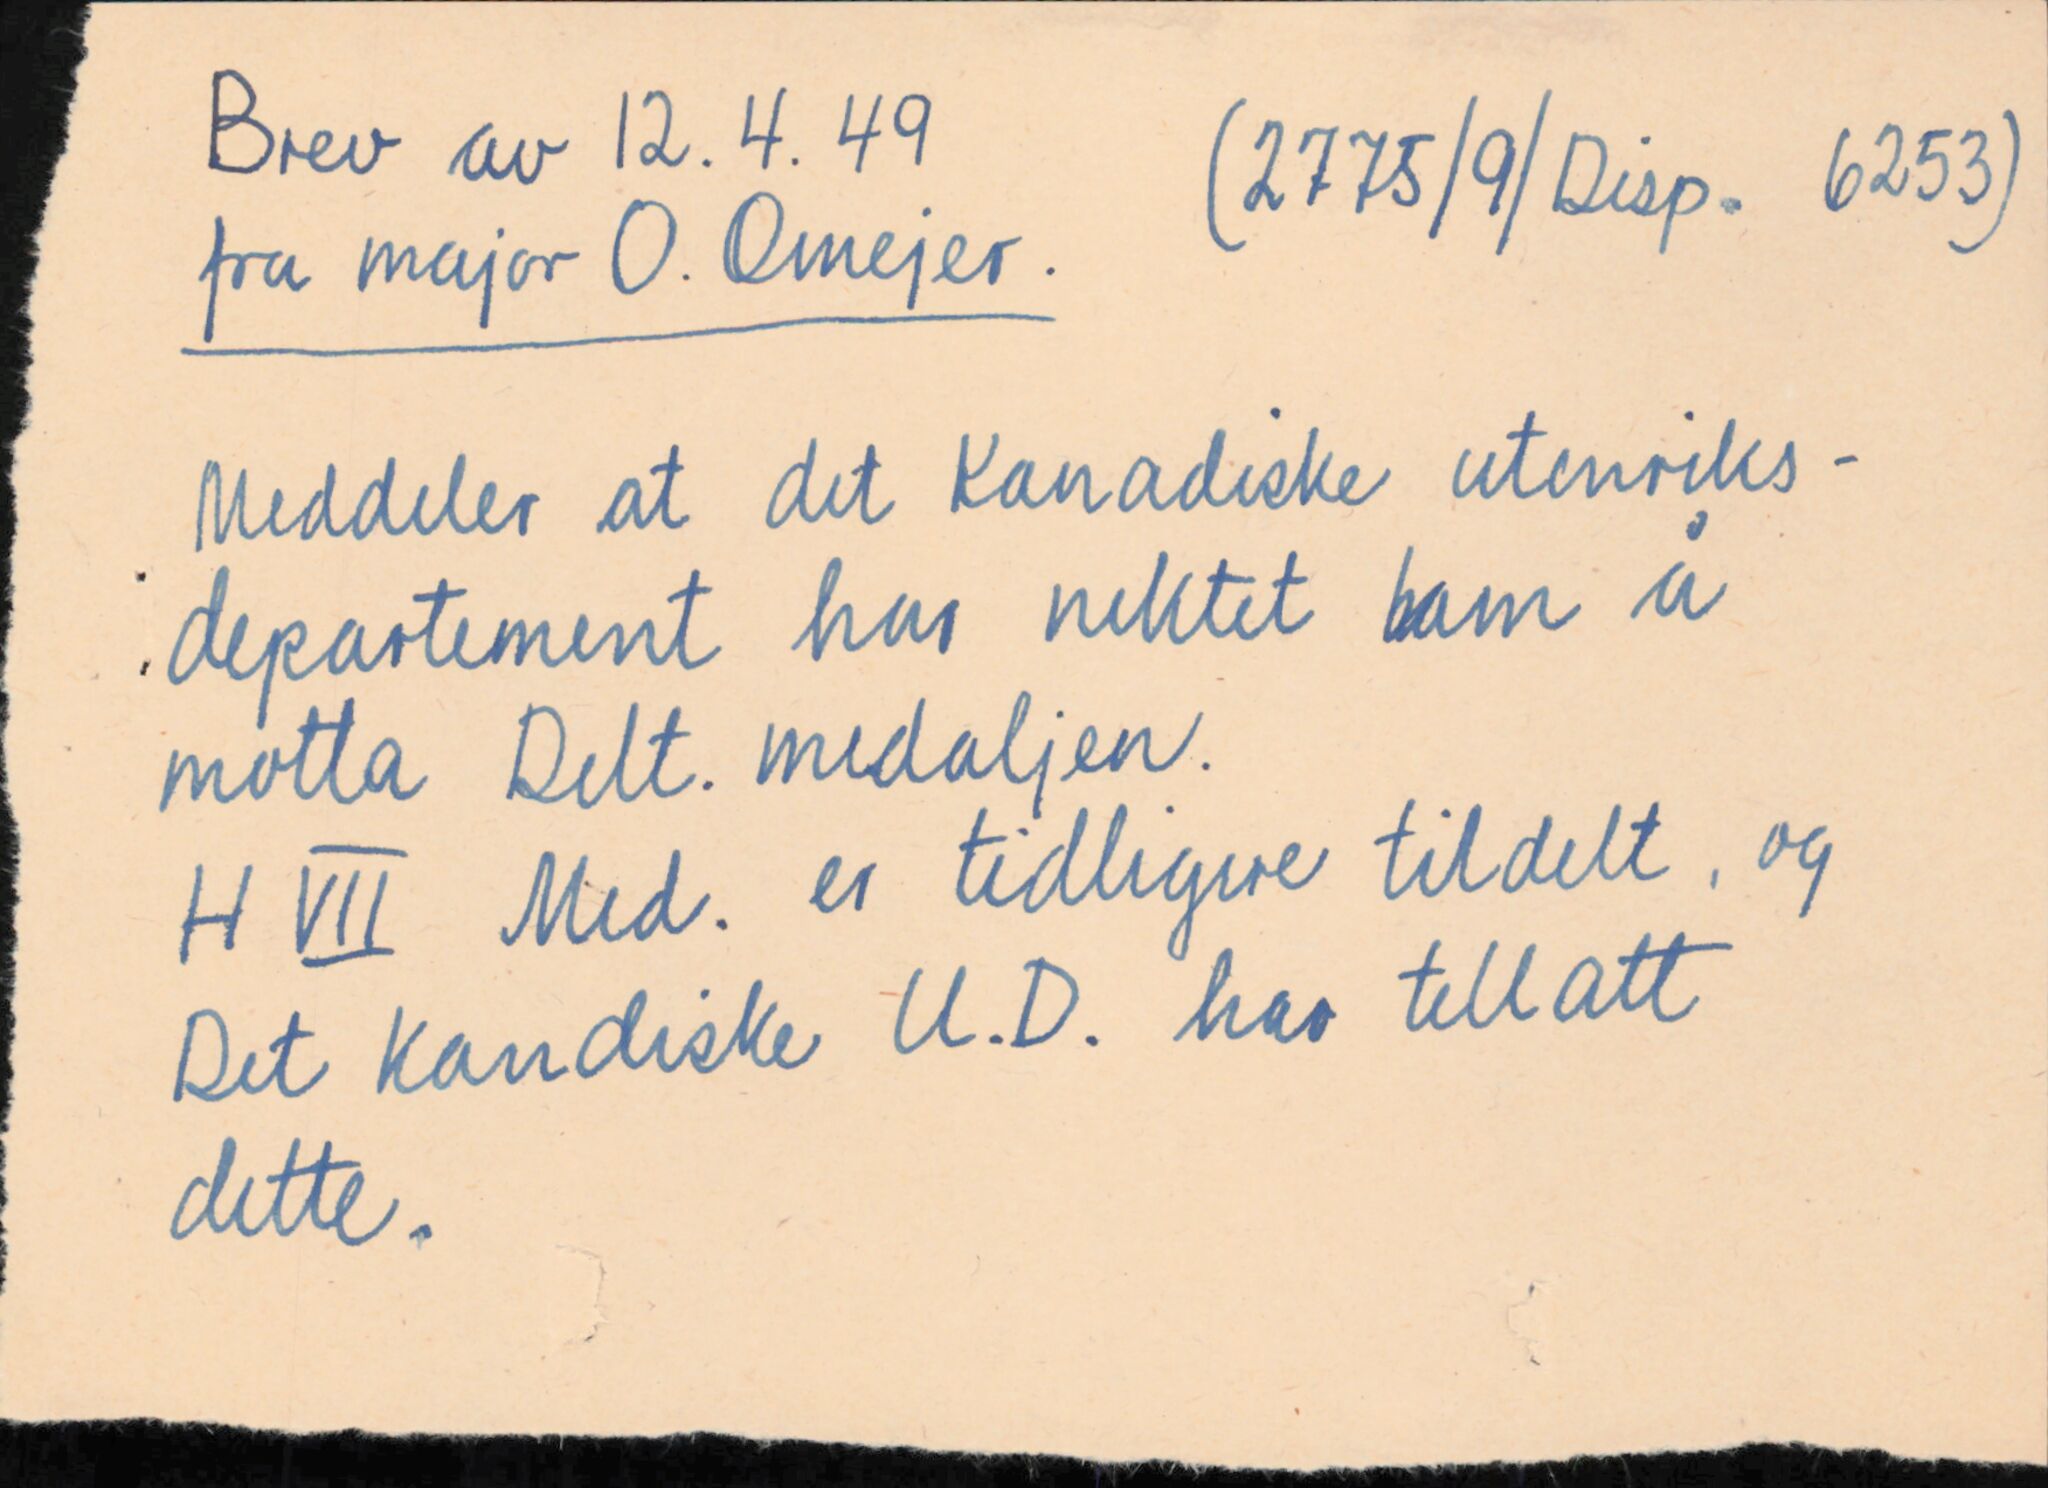 Brev av 12.4.49 (2775/9/Disp. 6253)
fra major O. Qmejer.
Meddeler at det Kanadiske utenriks-
departement har nektet ham å
motta Delt. medaljen.
H VII Med. er tidligere tildelt, og
Det Kandiske U.D. har tillatt
dette.